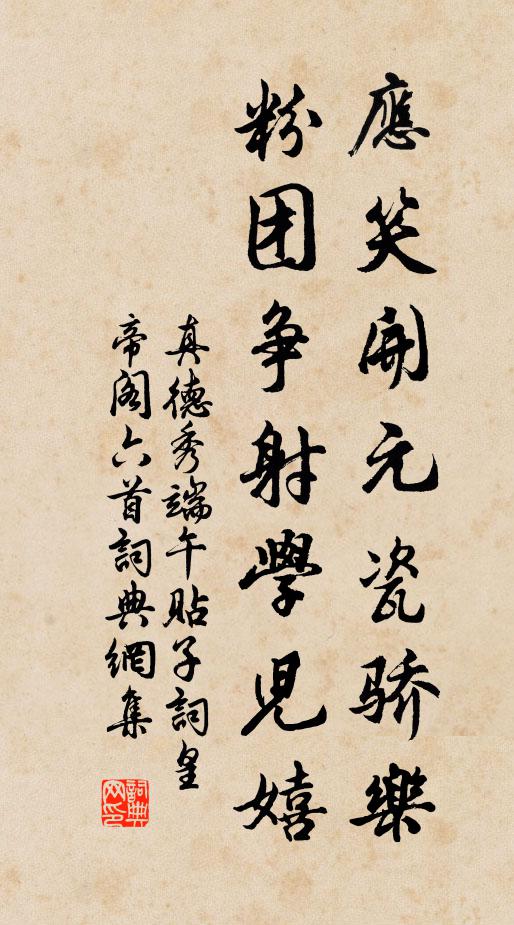 應笑開元瓷骄樂
粉团争射學児嬉
真德秀端午貼子詞皇
帝閣六首詞典網集
詞典网印